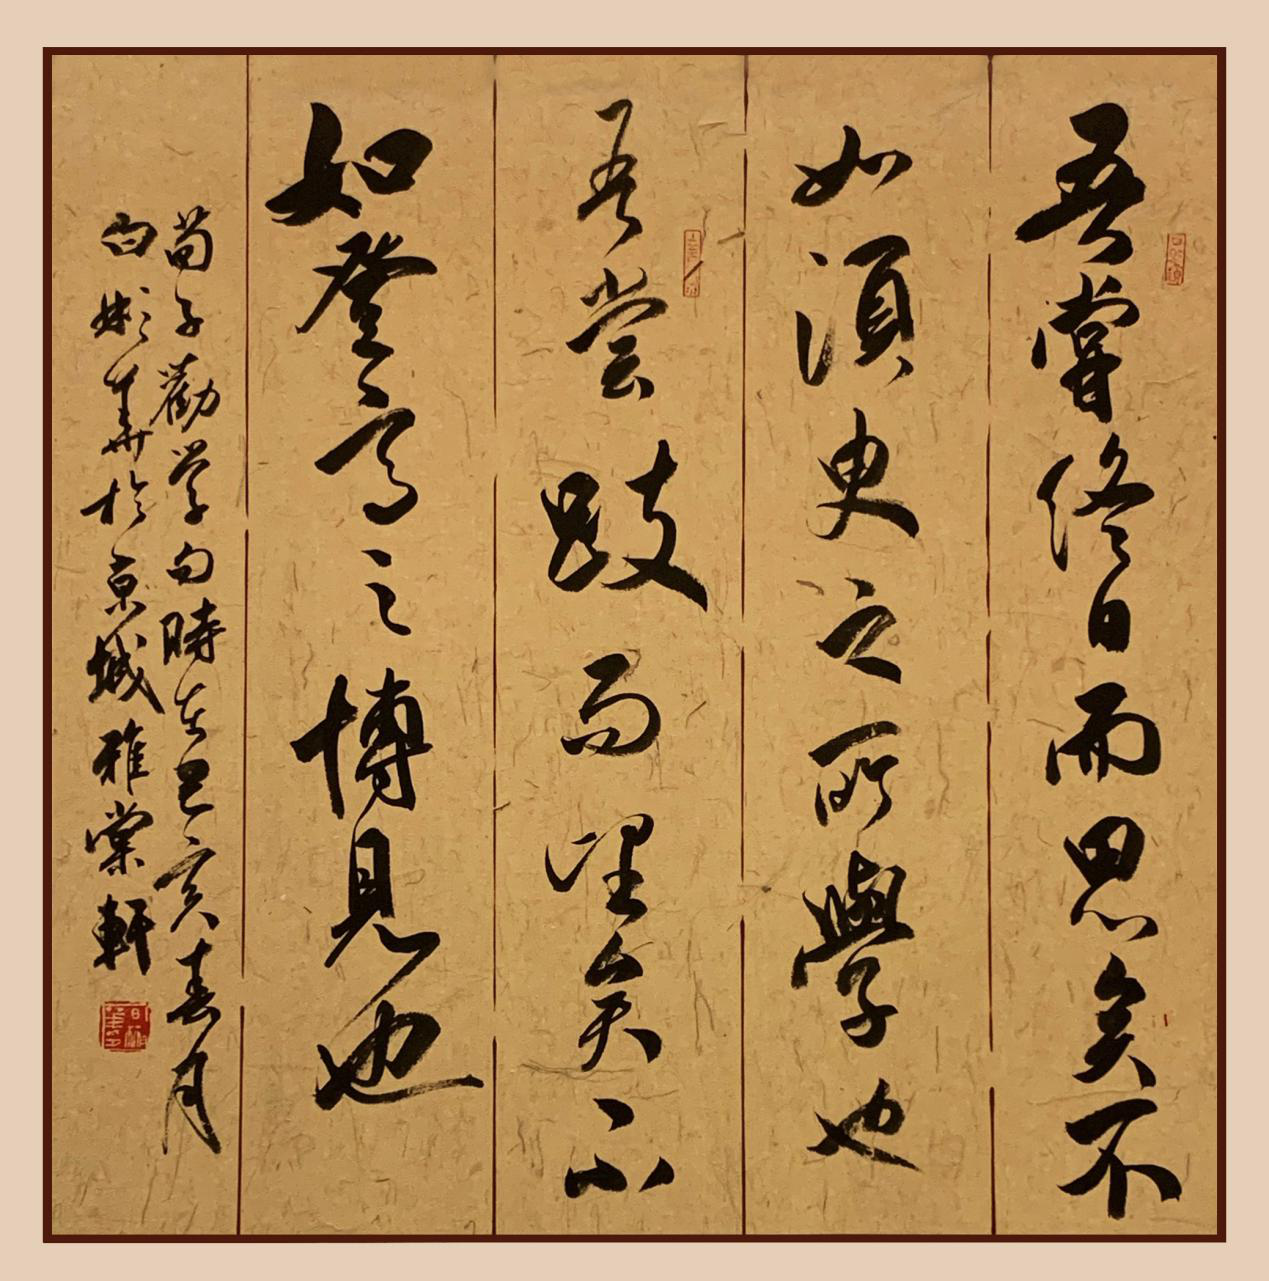 吾嘗終日而思矣不
如須臾之所學也
吾嘗跂而望矣不
如登高之博見也
荀子勸学句時在己亥春月
白彬華於京城雅棠軒